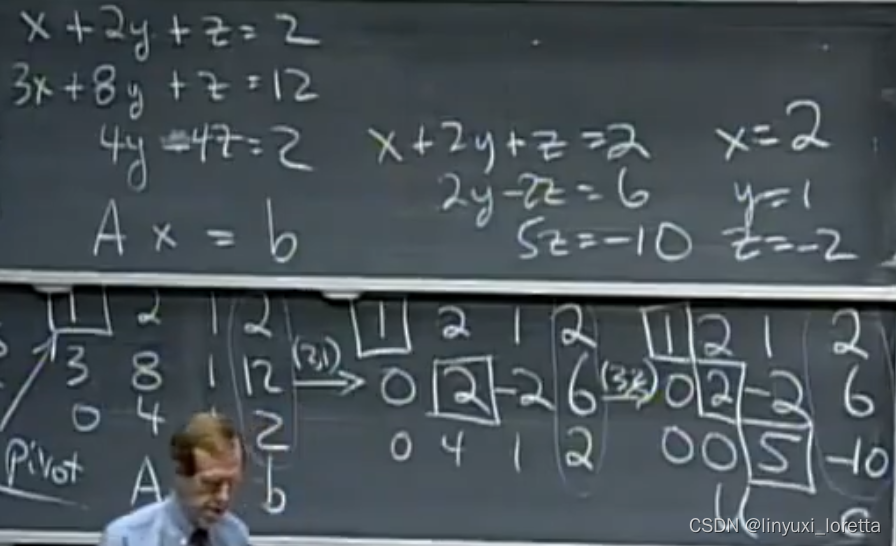 x + 2y + z = 2
3x + 8y + z = 12
4y = 4z = 2
x + 2y + z = 2
x = 2
2y - 2z = 6
y = 1
5z = -10
z = -2
A x = b
1 2 1 2
3 8 1 12
0 4 2
Pivot
A
b
(2,1)
1 2 1 2
0 2 -2 6
0 4 1 2
(3,2)
1 2 1 2
0 2 -2 6
0 0 5 -10
CSDN @linyuxi_loretta